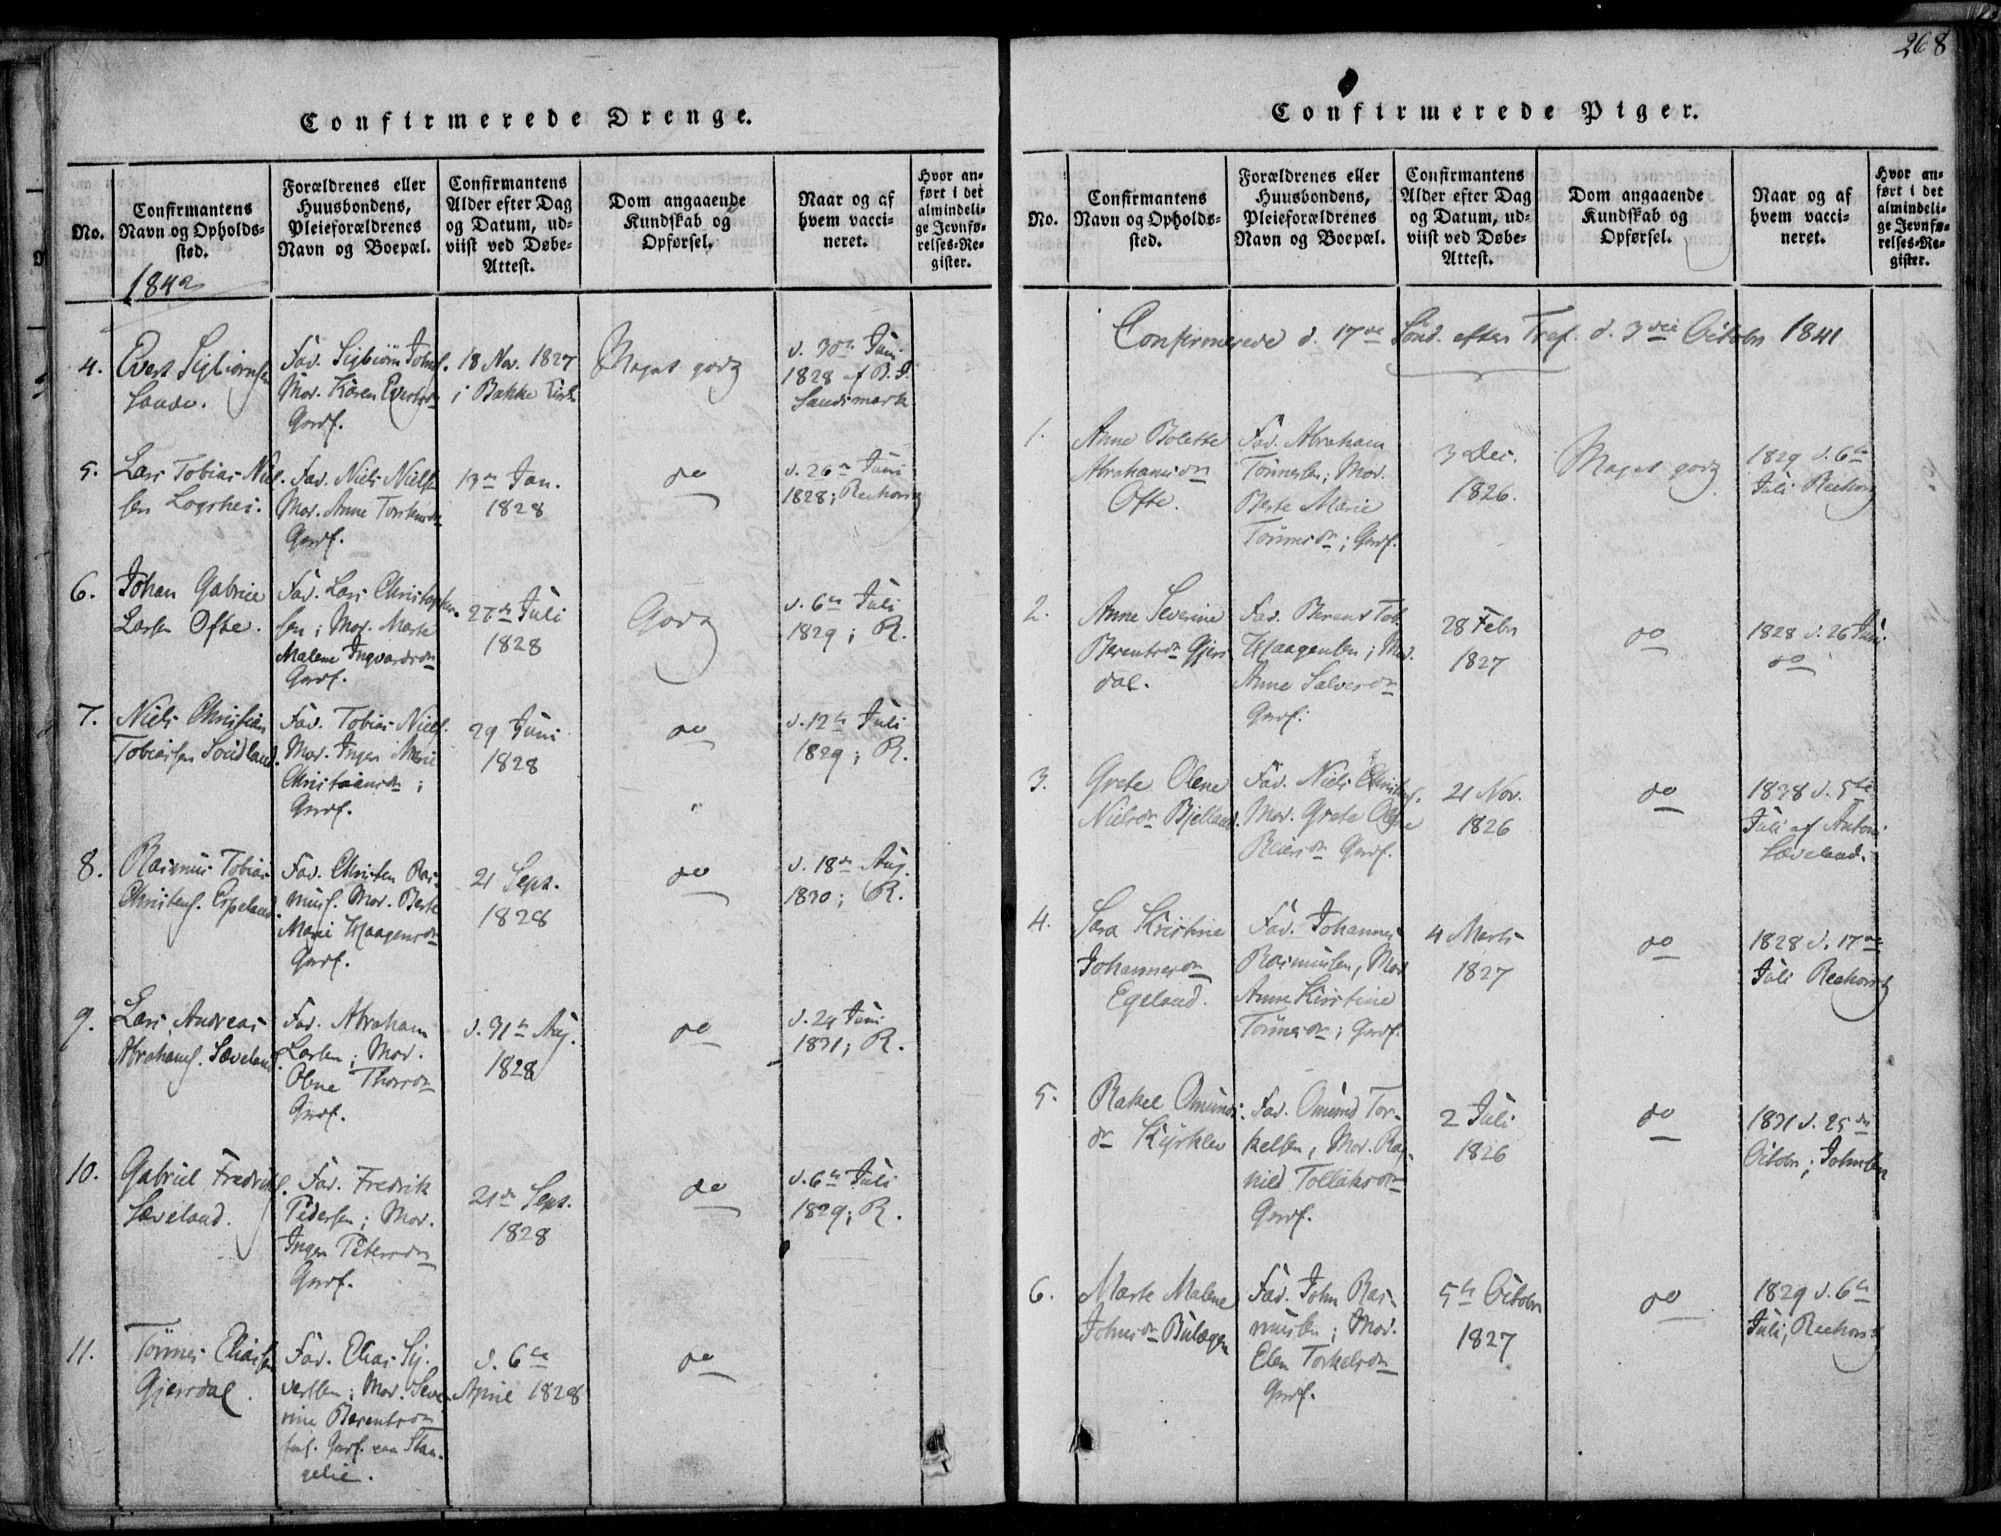 268
Confirmerede Drenge.
No.
Confirmantens
Navn og Opholds-
sted.
Forældrenes eller
Huusbondens,
Pleieforældrenes
Navn og Boepæl.
Confirmantens
Alder efter Dag
og Datum, ud-
viist ved Døbe-
Attest.
Dom angaaende
Kundskab og
Opførsel.
Naar og af
hvem vacci-
neret.
Hvor an-
ført i det
almindeli-
ge Jevnfø-
relses-Re-
gister.
1842
4.
Evert Sigbiørnsen
Sande.
Fad. Sigbiørn Johns.
Mor. Karen Evertsdn
Gmdf.
18 Nov. 1827
i Bakke Kirke
Meget godt
d. 30te Juni
1828 af B. I.
Sandsmark
5.
Lars Tobias Niel-
sen Logshei.
Fad. Niels Nielsen
Mor. Anne Torkelsdn
Gmdf.
13de Jan.
1828
do
d. 26de Juni
1828; Reehorst
6.
Johan Gabriel
Larsen Ofte.
Fad. Lars Christophers-
sen; Mor. Marte
Malene Ingvardsdn
Gmdf.
27de Juli
1828
Godt
d. 6te Juli
1829; R.
7.
Niels Christian
Tobiassen Sindland.
Fad. Tobias Niels.
Mor. Inger Marie
Christiansdn;
Gmdf.
29 Juni
1828
do
d. 12te Juli
1829; R.
8.
Rasmus Tobias
Christens. Espeland.
Fad. Christen Ras-
mus. Mor. Berte
Marie Haagensdn
Gmdf.
21 Sept.
1828
do
d. 18de Aug.
1830; R.
9.
Lars Andreas
Abrahams. Sæveland.
Fad. Abraham
Larsen; Mor.
Olene Thorsdn
Gmdf.
d. 31te Aug.
1828
do
d. 24 Juni
1831; R.
10.
Gabriel Fredriks.
Sæveland.
Fad. Fredrik
Pedersen; Mor.
Inger Petersdn
Gmdf.
21de Sept.
1828
do
d. 6te Juli
1829; R.
11.
Tønnes Eliassen
Gjersdal.
Fad. Elias Sy-
vertsen; Mor. Seve-
rine Berentsdn
Gmdf. paa Stan-
gelie.
d. 6te
April 1828
do
Confirmerede Piger.
No.
Confirmantens
Navn og Opholds-
sted.
Forældrenes eller
Huusbondens,
Pleieforældrenes
Navn og Boepæl.
Confirmantens
Alder efter Dag
og Datum, ud-
viist ved Døbe-
Attest.
Dom angaaende
Kundskab og
Opførsel.
Naar og af
hvem vacci-
neret.
Hvor an-
ført i det
almindeli-
ge Jevnfø-
relses-Re-
gister.
Confirmerede d. 17de Sønd. efter Tref. d. 3die Octobr 1841
1.
Anne Bolette
Abrahamsdn
Ofte.
Fad. Abraham
Tønnesen; Mor.
Berte Marie
Tønnesdn; Gmdf.
3 Dec.
1826.
Meget godt
1829 d. 6te
Juli Reehorst
2.
Anne Severine
Berentsdn Gjers-
dal.
Fad. Berent Tob.
Haagensen; Mor.
Anne Salvesdn
Gmdf.
28 Febr
1827
do
1828 d. 26 Juni
do
3.
Grete Olene
Nielsdn Bjelland.
Fad. Niels Christens.
Mor. Grete Olene
Reiersdn Gmdf.
21 Nov.
1826
do
1838 d. 5te
Juli af Anton
Sæveland.
4.
Sara Kristine
Johannesdn
Egeland.
Fad. Johannes
Rasmussen, Mor
Anne Kirstine
Tønnesdn; Gmdf.
4 Marts
1827
do
1828 d. 17de
Juli Reehorst
5.
Rakel Omunds-
dn Kyrklev
Fad. Omund Tor-
kelsen, Mor. Rag-
nild Tollaksdn
Gmdf.
2 Juli
1826
do
1831 d. 25de
Octobr; Johnsen
6.
Marte Malene
Johnsdn Bulægen
Fad. John Ras-
mussen; Mor.
Elen Torkelsdn
Gmdf.
5te Octobr
1827
do
1829 d. 6te
Juli, Reehorst